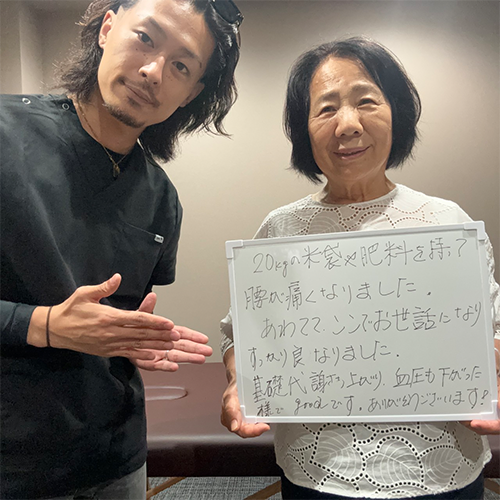 20kgの米袋や肥料を持って
腰が痛くなりました.
あわてて、シンでお世話になり
すっかり良くなりました.
基礎代謝も上がり、血圧も下がった
様で goodです。ありがとうございます!